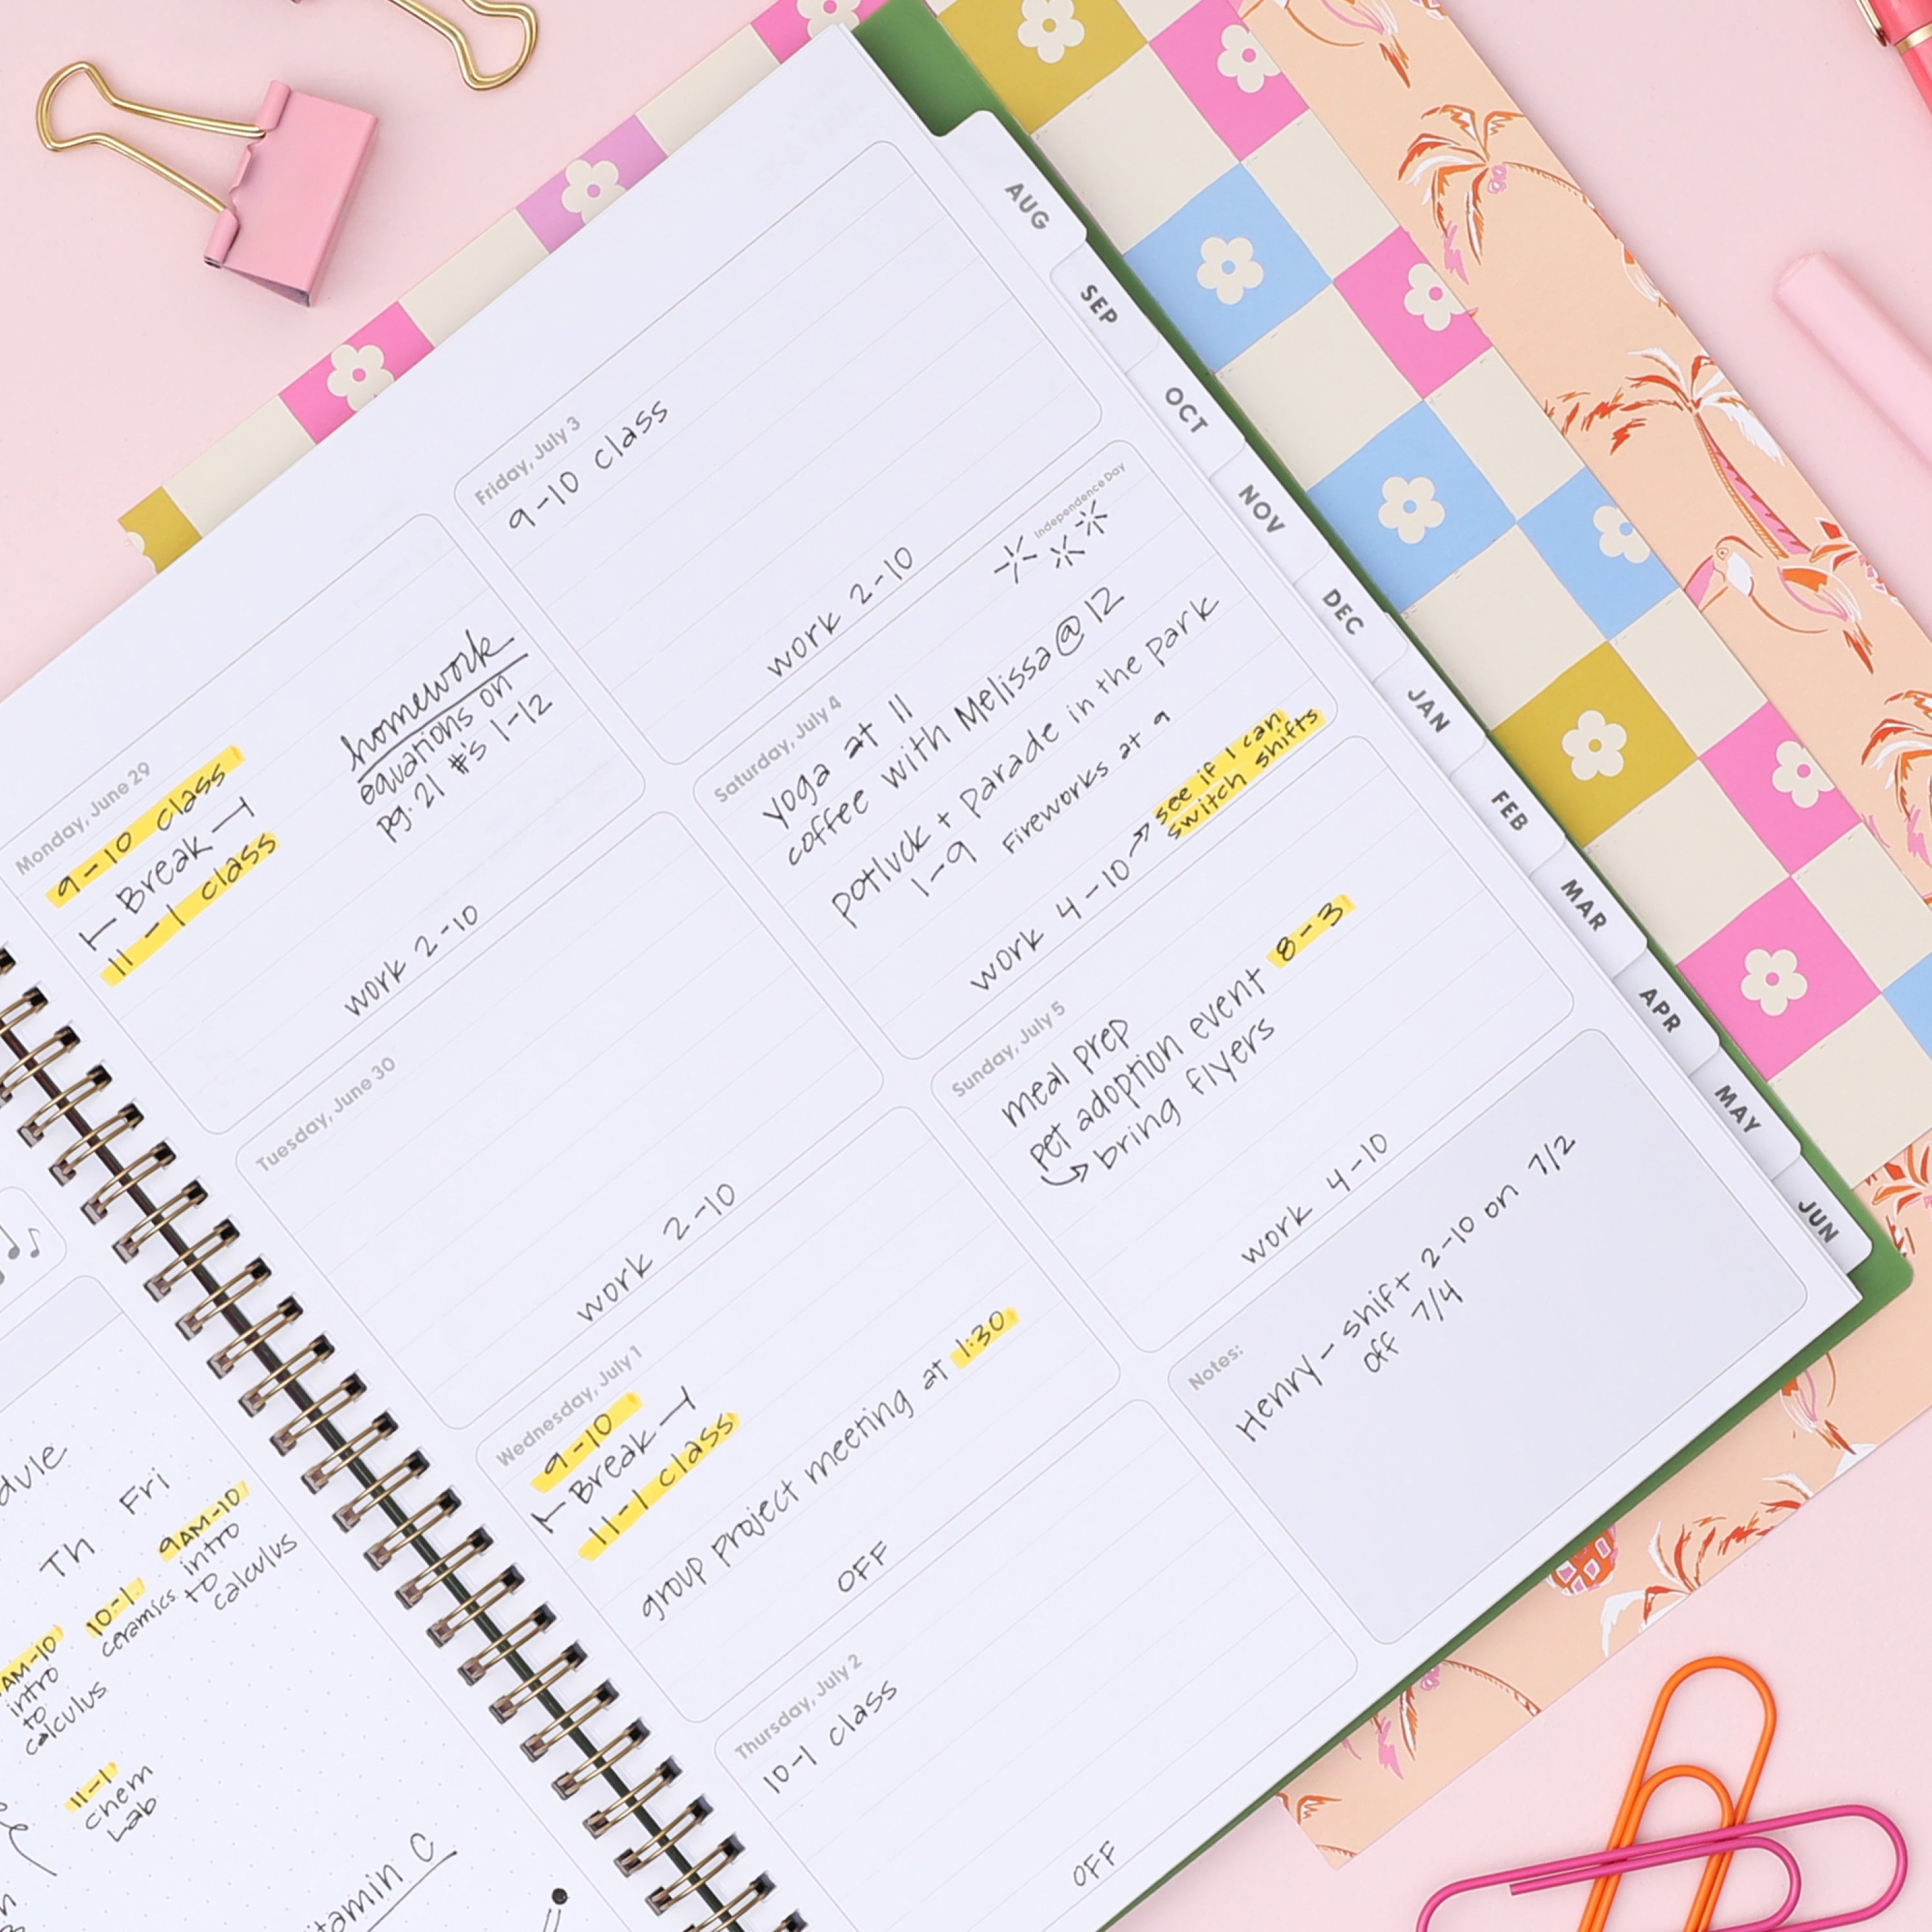 Monday, June 29
9-10 class
Break
11-1 class
homework
equations on
pg. 21 #'s 1-12
work 2-10
Tuesday, June 30
work 2-10
Wednesday, July 1
9-10
Break
11-1 class
group project meeting at 1:30
OFF
Thursday, July 2
10-1 class
OFF
Friday, July 3
9-10 class
work 2-10
Saturday, July 4
Independence Day
yoga at 11
coffee with Melissa @ 12
potluck + parade in the park
1-9
Fireworks at 9
work 4-10 → see if I can
switch shifts
Sunday, July 5
meal prep
pet adoption event 8-3
↪ bring flyers
work 4-10
Notes:
Henry - shift 2-10 on 7/2
Off 7/4
AUG
SEP
OCT
NOV
DEC
JAN
FEB
MAR
APR
MAY
JUN
Th
Fri
AM-10
intro
to
calculus
10-1
ceramics
9AM-10
intro
to
calculus
11-1
chem
Lab